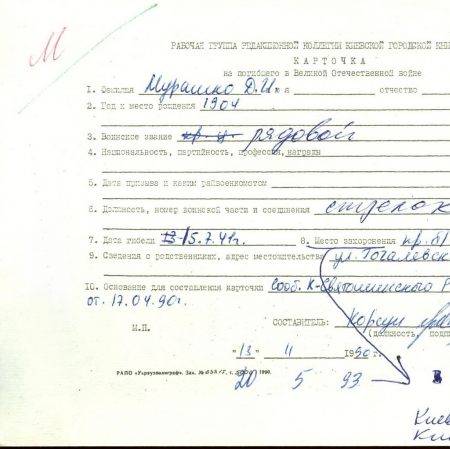 М
РАБОЧАЯ ГРУППА РЕДАКЦИОННОЙ КОЛЛЕГИИ КИЕВСКОЙ ГОРОДСКОЙ КНИ
КАРТОЧКА
на погибшего в Великой Отечественной войне
1. Фамилия Мурашко Д.И. имя отчество
2. Год и место рождения 1904
3. Воинское звание рядовой
4. Национальность, партийность, профессия, награды
5. Дата призыва и каким райвоенкоматом
6. Должность, номер воинской части и соединения стрелок
7. Дата гибели 15.7.41г. 8. Место захоронения
9. Сведения о родственниках, адрес местожительства ул. Гоголевск
10. Основание для составления карточки сооб. К-Святошинского Р
от 17.04.90г.
СОСТАВИТЕЛЬ: Корсун
М.П. (должность, подп
"13" 11 1990г.
РАПО «Укрвузполиграф». Зак. 1990.
20 5 93
Киев